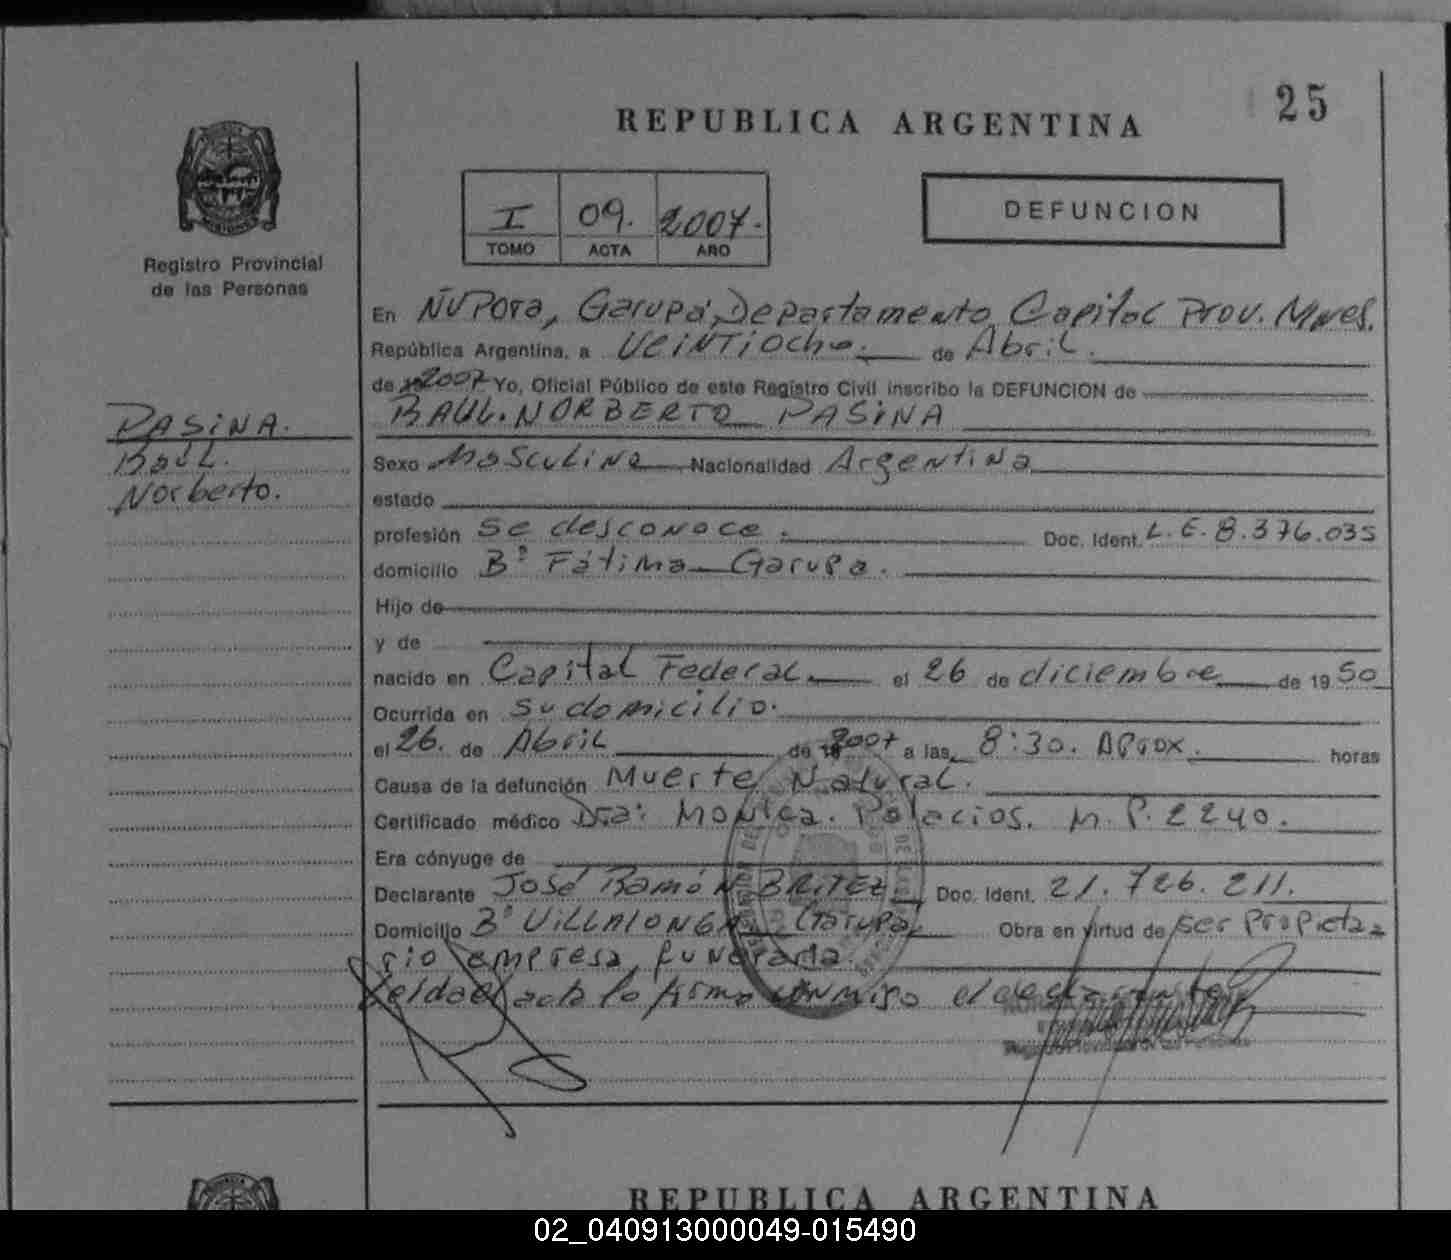 25
REPUBLICA ARGENTINA
I 09. 2007.
TOMO ACTA AÑO
DEFUNCION
Registro Provincial
de las Personas
En Ñu Pora, Garupá, Departamento Capital Prov. Mnes.
República Argentina, a veintiocho. de Abril.
de 2007 Yo, Oficial Público de este Registro Civil inscribo la DEFUNCION de
RAUL NORBERTO PASINA
PASINA.
Raúl.
Norberto.
Sexo Masculino Nacionalidad Argentina
estado
profesión se desconoce. Doc. Ident. L.E. 8.376.035
domicilio Bº Fátima Garupa.
Hijo de
y de
nacido en Capital Federal el 26 de diciembre de 1950
Ocurrida en su domicilio.
el 26. de Abril de 2007 a las 8:30. Aprox. horas
Causa de la defunción Muerte Natural.
Certificado médico Dra: Monica. Palacios. M.P. 2240.
Era cónyuge de
Declarante José Ramón BRITEZ Doc. Ident. 21.726.211.
Domicilio Bº VILLALONGA Garupa. Obra en virtud de ser propieta
rio empresa funeraria.
Leida el acta la firma conmigo el declarante
Registro Provincial de las Personas
REPUBLICA ARGENTINA
02_040913000049-015490